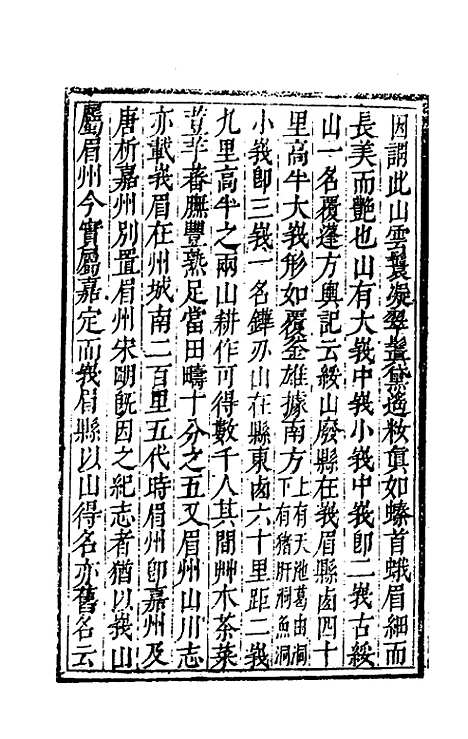 因謂此山雲鬟凝翠鬒黛遙粧眞如螓首蛾眉細而
長美而艷也山有大峩中峩小峩中峩卽二峩古綏
山一名覆蓬方輿記云綏山廢縣在峩眉縣鹵四十
里高半大峩形如覆釜雄據南方上有天池葛由洞下有猪肝洞魚洞
小峩卽三峩一名鏵刃山在縣東鹵六十里距二峩
九里高半之兩山耕作可得數千人其間艸木茶菜
荳芋蕃膴豐熟足當田疇十分之五又眉州山川志
亦載峩眉在州城南二百里五代時眉州卽嘉州及
唐析嘉州別置眉州宋明旣因之紀志者猶以峩山
屬眉州今實屬嘉定而峩眉縣以山得名亦舊名云